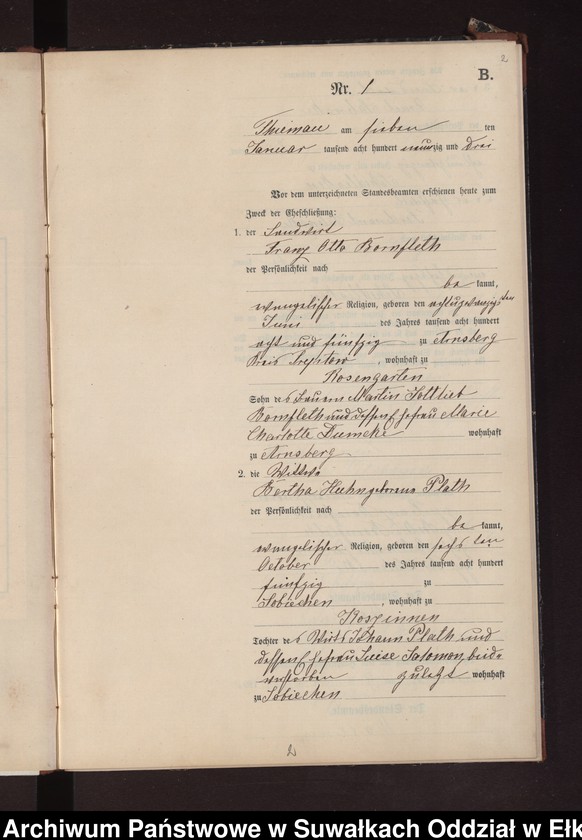 2
B.
Nr. 1
Thiemau am sieben ten
Januar tausend acht hundert neunzig und drei
Vor dem unterzeichneten Standesbeamten erschienen heute zum
Zweck der Eheschließung:
1. der Landwirt
Franz Otto Bornfleth
der Persönlichkeit nach
be kannt,
evangelischer Religion, geboren den achtundzwanzigsten
Juni des Jahres tausend acht hundert
acht und fünfzig zu Arnsberg
Kreis Treptow, wohnhaft zu
Rosengarten
Sohn des Bauern Martin Gottlieb
Bornfleth und dessen Ehefrau Marie
Charlotte Dumcke wohnhaft
zu Arnsberg
2. die Wittwe
Bertha Huhn geborene Plath
der Persönlichkeit nach
be kannt,
evangelischer Religion, geboren den sechs ten
October des Jahres tausend acht hundert
fünfzig zu
Sobiechen, wohnhaft zu
Rosginnen
Tochter des Wirts Johann Plath und
dessen Ehefrau Luise Salomon, beide
verstorben zuletzt wohnhaft
zu Sobiechen
2
Archiwum Państwowe w Suwałkach Oddział w Ełk